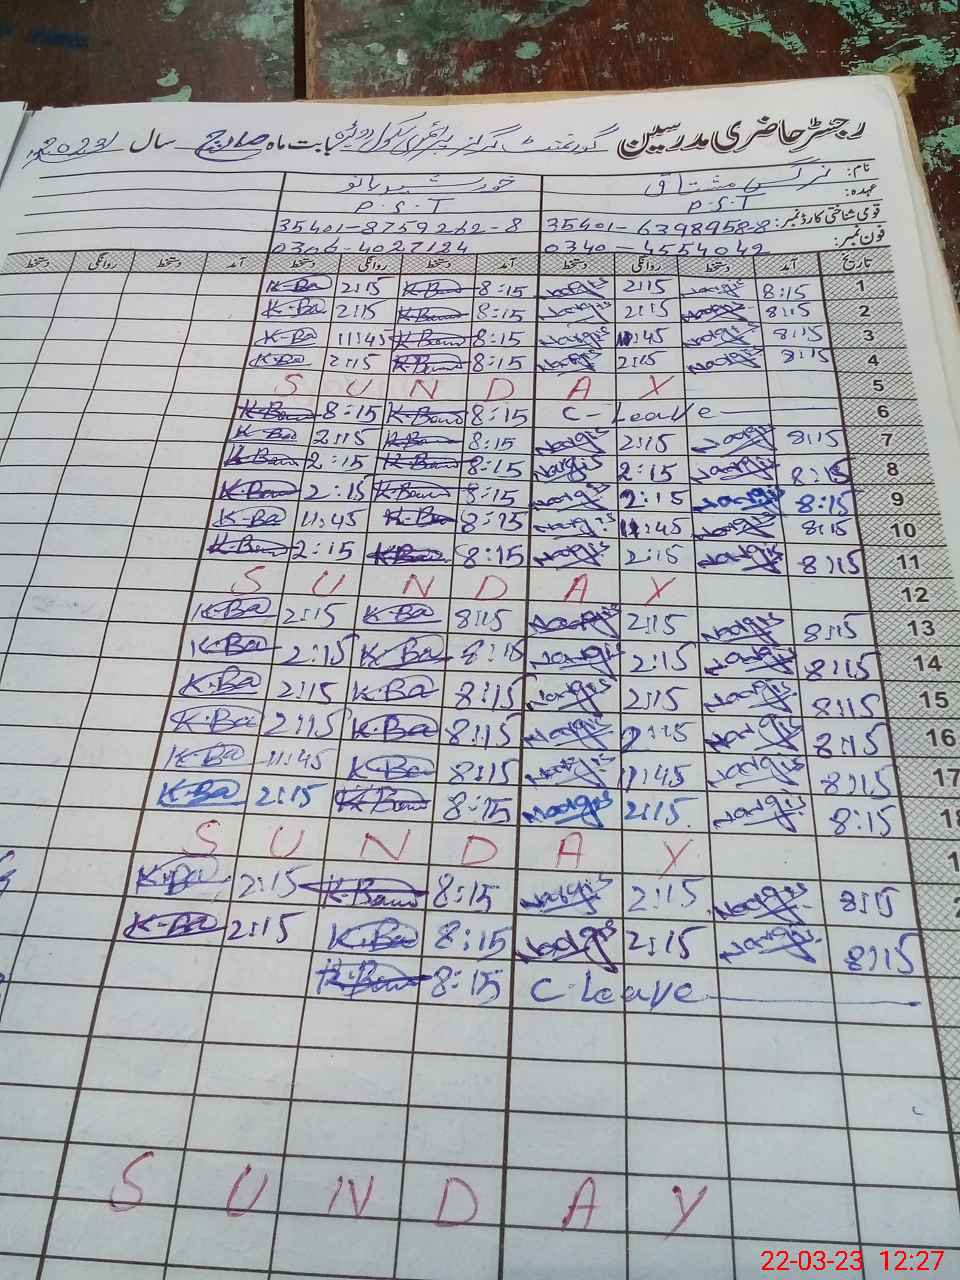 رجسٹر حاضری مدرسین گورنمنٹ گرلز پرائمری سکول بابت ماہ مارچ سال 2023ء
نام: نرگس مشتاق خورشید بانو
عہدہ: P.S.T P.S.T
قومی شناختی کارڈ نمبر: 35401-6398958-8 35401-8759262-8
فون نمبر: 0340-4554042 0306-4027124
تاریخ آمد دستخط روانگی دستخط آمد دستخط روانگی دستخط آمد دستخط روانگی دستخط
1 8:15 Nargis 2:15 Nargis 8:15 K-Bano 2:15 K-Ba
2 8:15 Nargis 2:15 Nargis 8:15 K-Bano 2:15 K-Ba
3 8:15 Nargis 11:45 Nargis 8:15 K-Bano 11:45 K-Ba
4 8:15 Nargis 2:15 Nargis 8:15 K-Bano 2:15 K-Ba
5 SUNDAY
6 C-Leave 8:15 K-Bano 8:15 K-Bano
7 8:15 Nargis 2:15 Nargis 8:15 K-Bano 2:15 K-Ba
8 8:15 Nargis 2:15 Nargis 8:15 K-Bano 2:15 K-Bano
9 8:15 Nargis 2:15 Nargis 8:15 K-Bano 2:15 K-Bano
10 8:15 Nargis 11:45 Nargis 8:15 K-Bano 11:45 K-Ba
11 8:15 Nargis 2:15 Nargis 8:15 K-Bano 2:15 K-Bano
12 SUNDAY
13 8:15 Nargis 2:15 Nargis 8:15 K-Ba 2:15 K-Ba
14 8:15 Nargis 2:15 Nargis 8:15 K-Ba 2:15 K-Ba
15 8:15 Nargis 2:15 Nargis 8:15 K-Ba 2:15 K-Ba
16 8:15 Nargis 2:15 Nargis 8:15 K-Ba 2:15 K-Ba
17 8:15 Nargis 11:45 Nargis 8:15 K-Ba 11:45 K-Ba
18 8:15 Nargis 2:15 Nargis 8:15 K-Bano 2:15 K-Ba
1 SUNDAY
2 8:15 Nargis 2:15 Nargis 8:15 K-Bano 2:15 K-Ba
8:15 Nargis 2:15 Nargis 8:15 K-Ba 2:15 K-Ba
C-Leave 8:15 K-Bano
SUNDAY
22-03-23 12:27